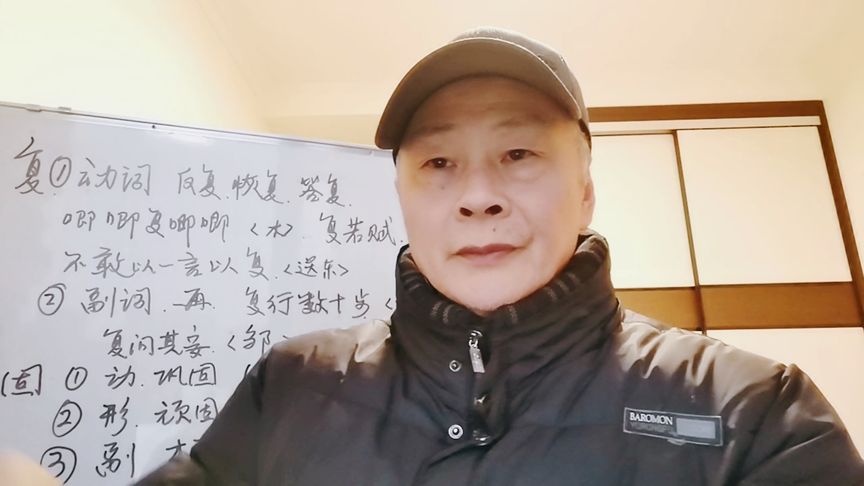 复①动词 反复.恢复.答复.
唧唧复唧唧〈木〉.复若赋.
不敢以一言以复.〈送东〉
②副词.再 复行数十步〈
复问其妾.〈邹
固①动.巩固
②形.顽固
③副
BAROMON